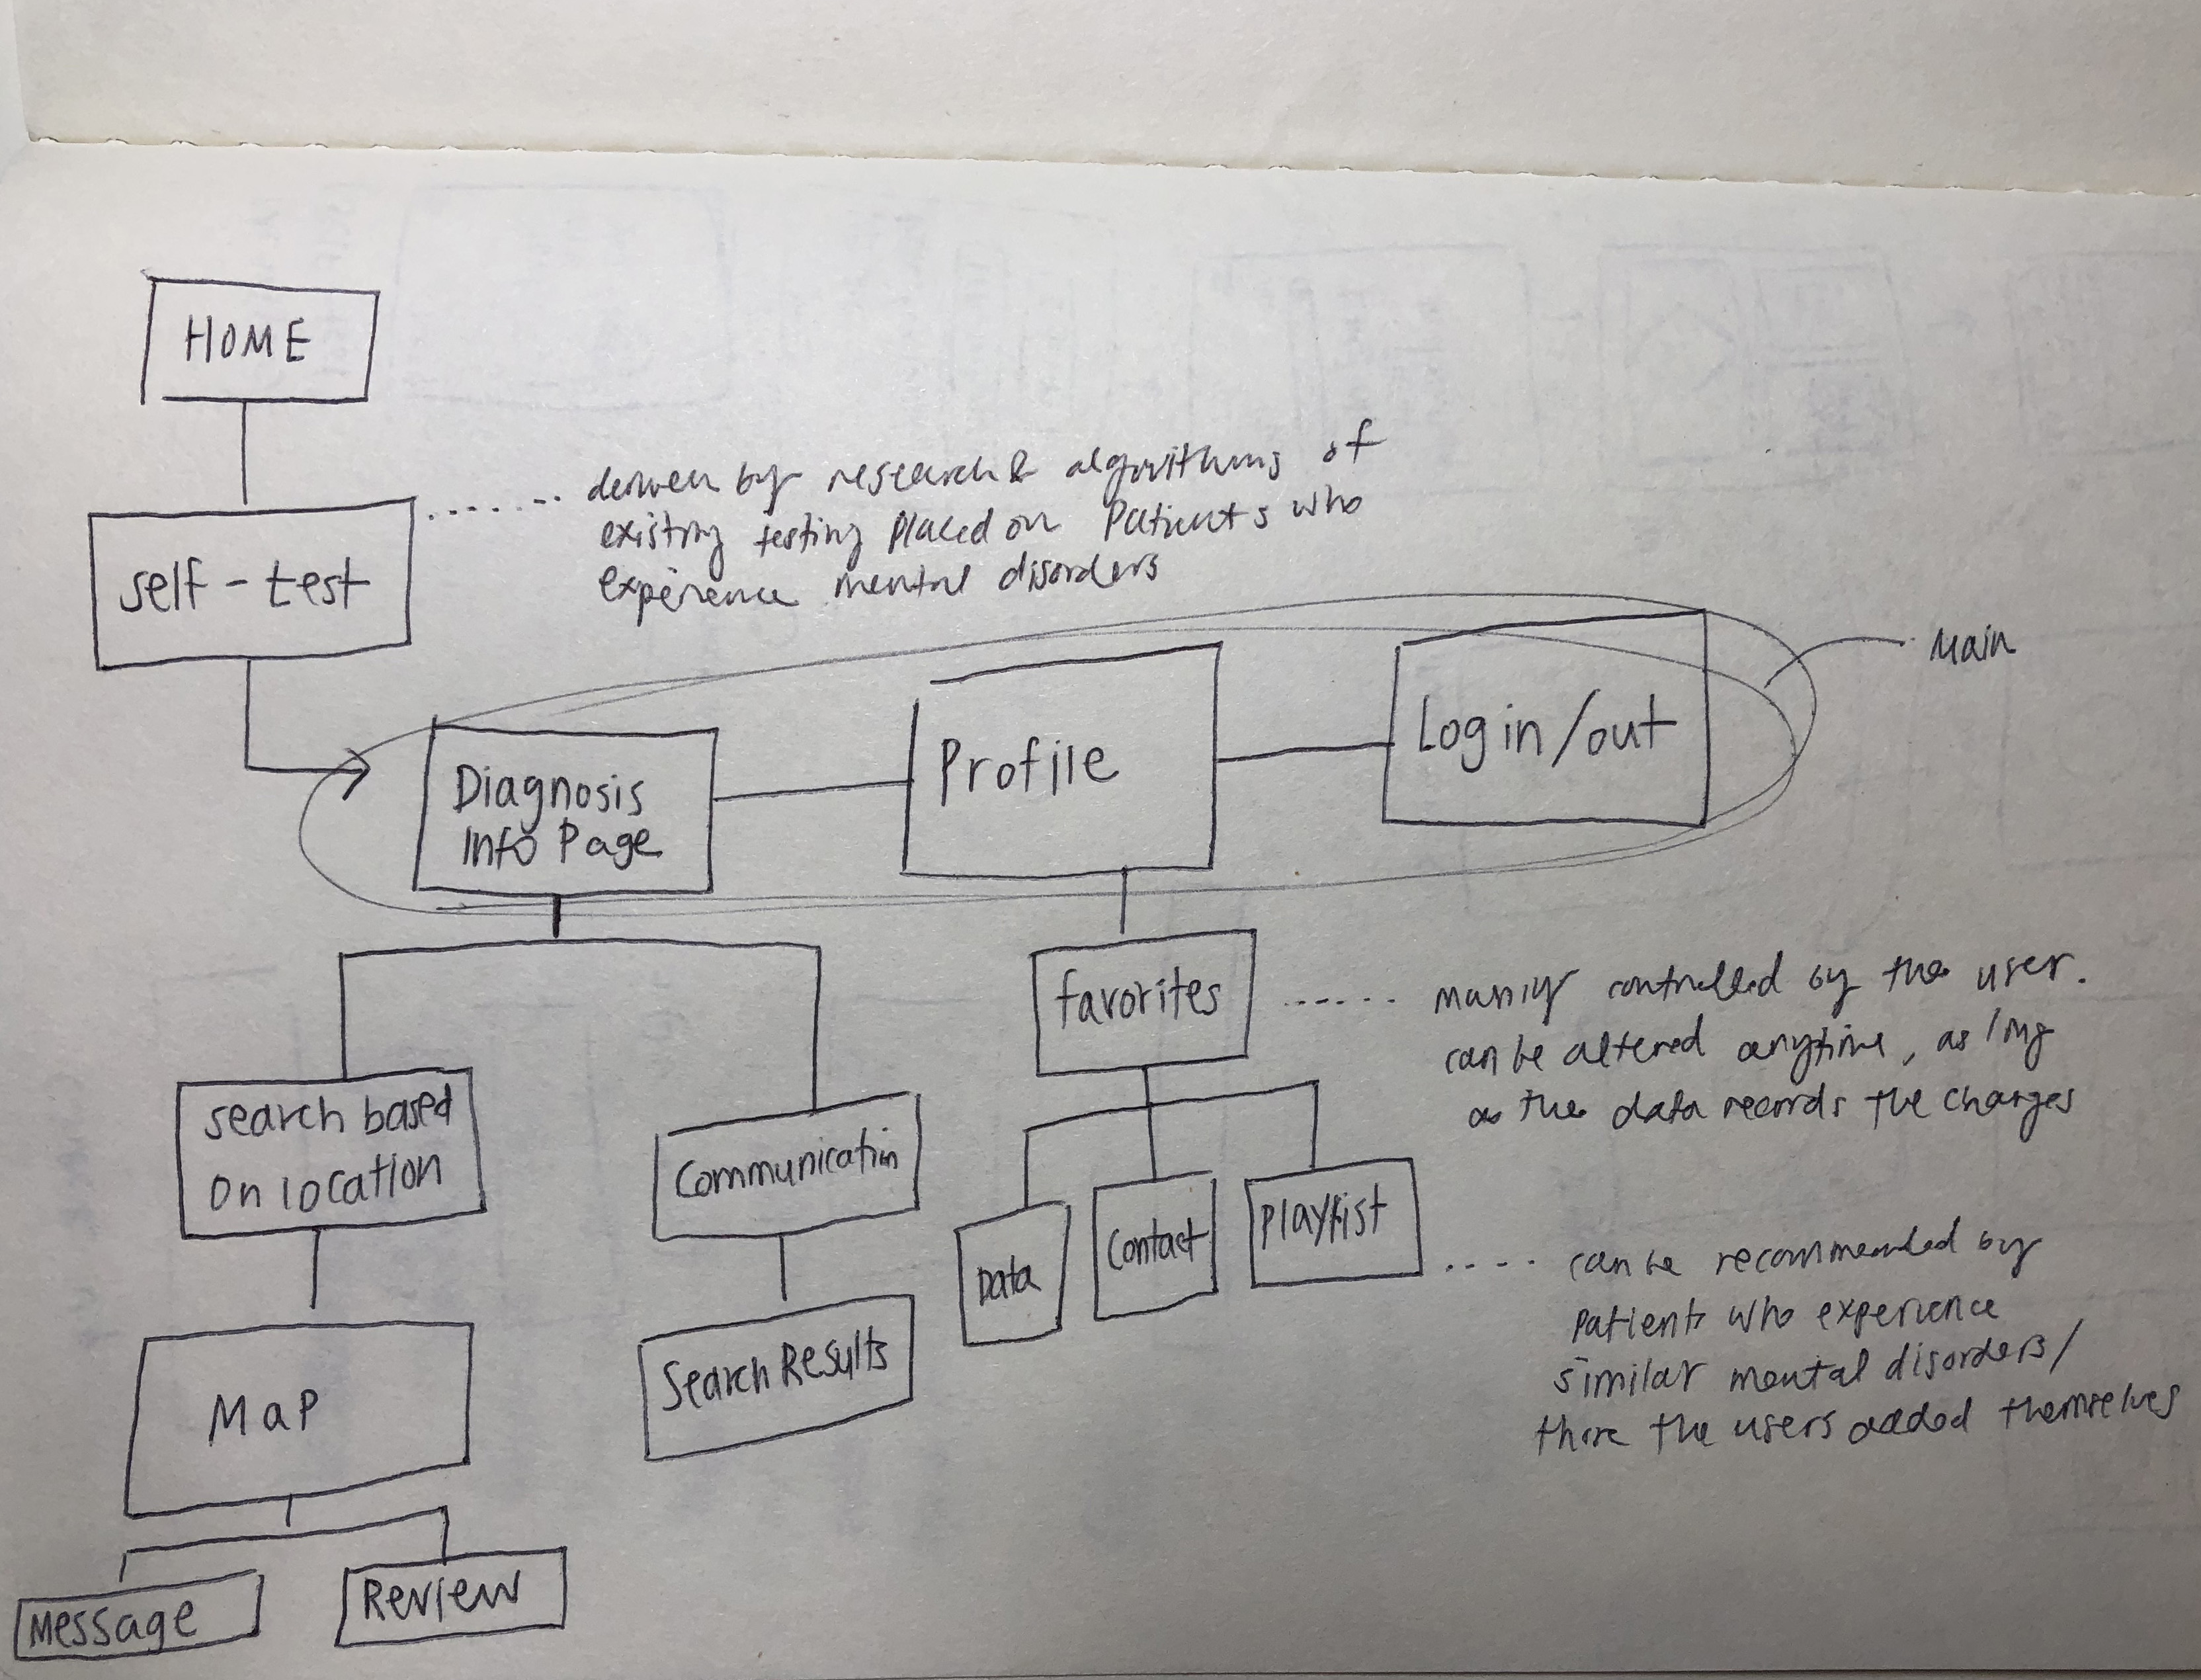 HOME
self-test
derived by research & algorithms of
existing testing placed on patients who
experience mental disorders
Main
Diagnosis
Info Page
Profile
Log in/out
favorites
mainly controlled by the user.
can be altered anytime, as long
as the data records the changes
search based
on location
Communication
Data
Contact
Playlist
can be recommended by
patients who experience
similar mental disorders/
the users added themselves
Map
Search Results
Message
Review